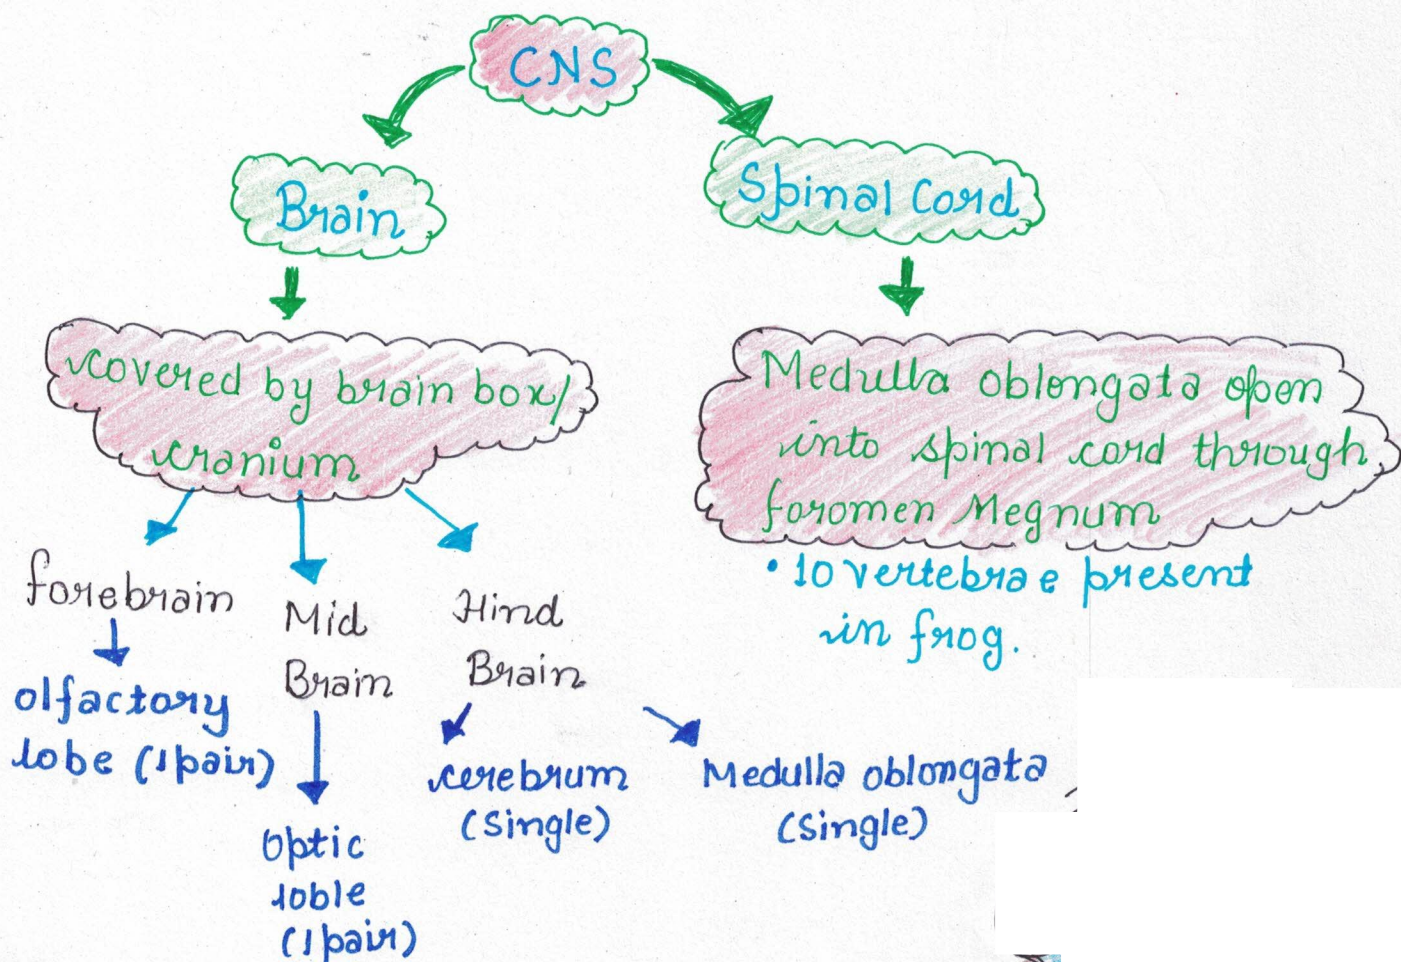 CNS
Brain
Spinal Cord
covered by brain box/
cranium
Medulla oblongata open
into spinal cord through
foromen Megnum
• 10 vertebrae present
in frog.
forebrain
Mid
Brain
Hind
Brain
olfactory
lobe (1 pair)
Optic
loble
(1 pair)
cerebrum
(Single)
Medulla oblongata
(Single)